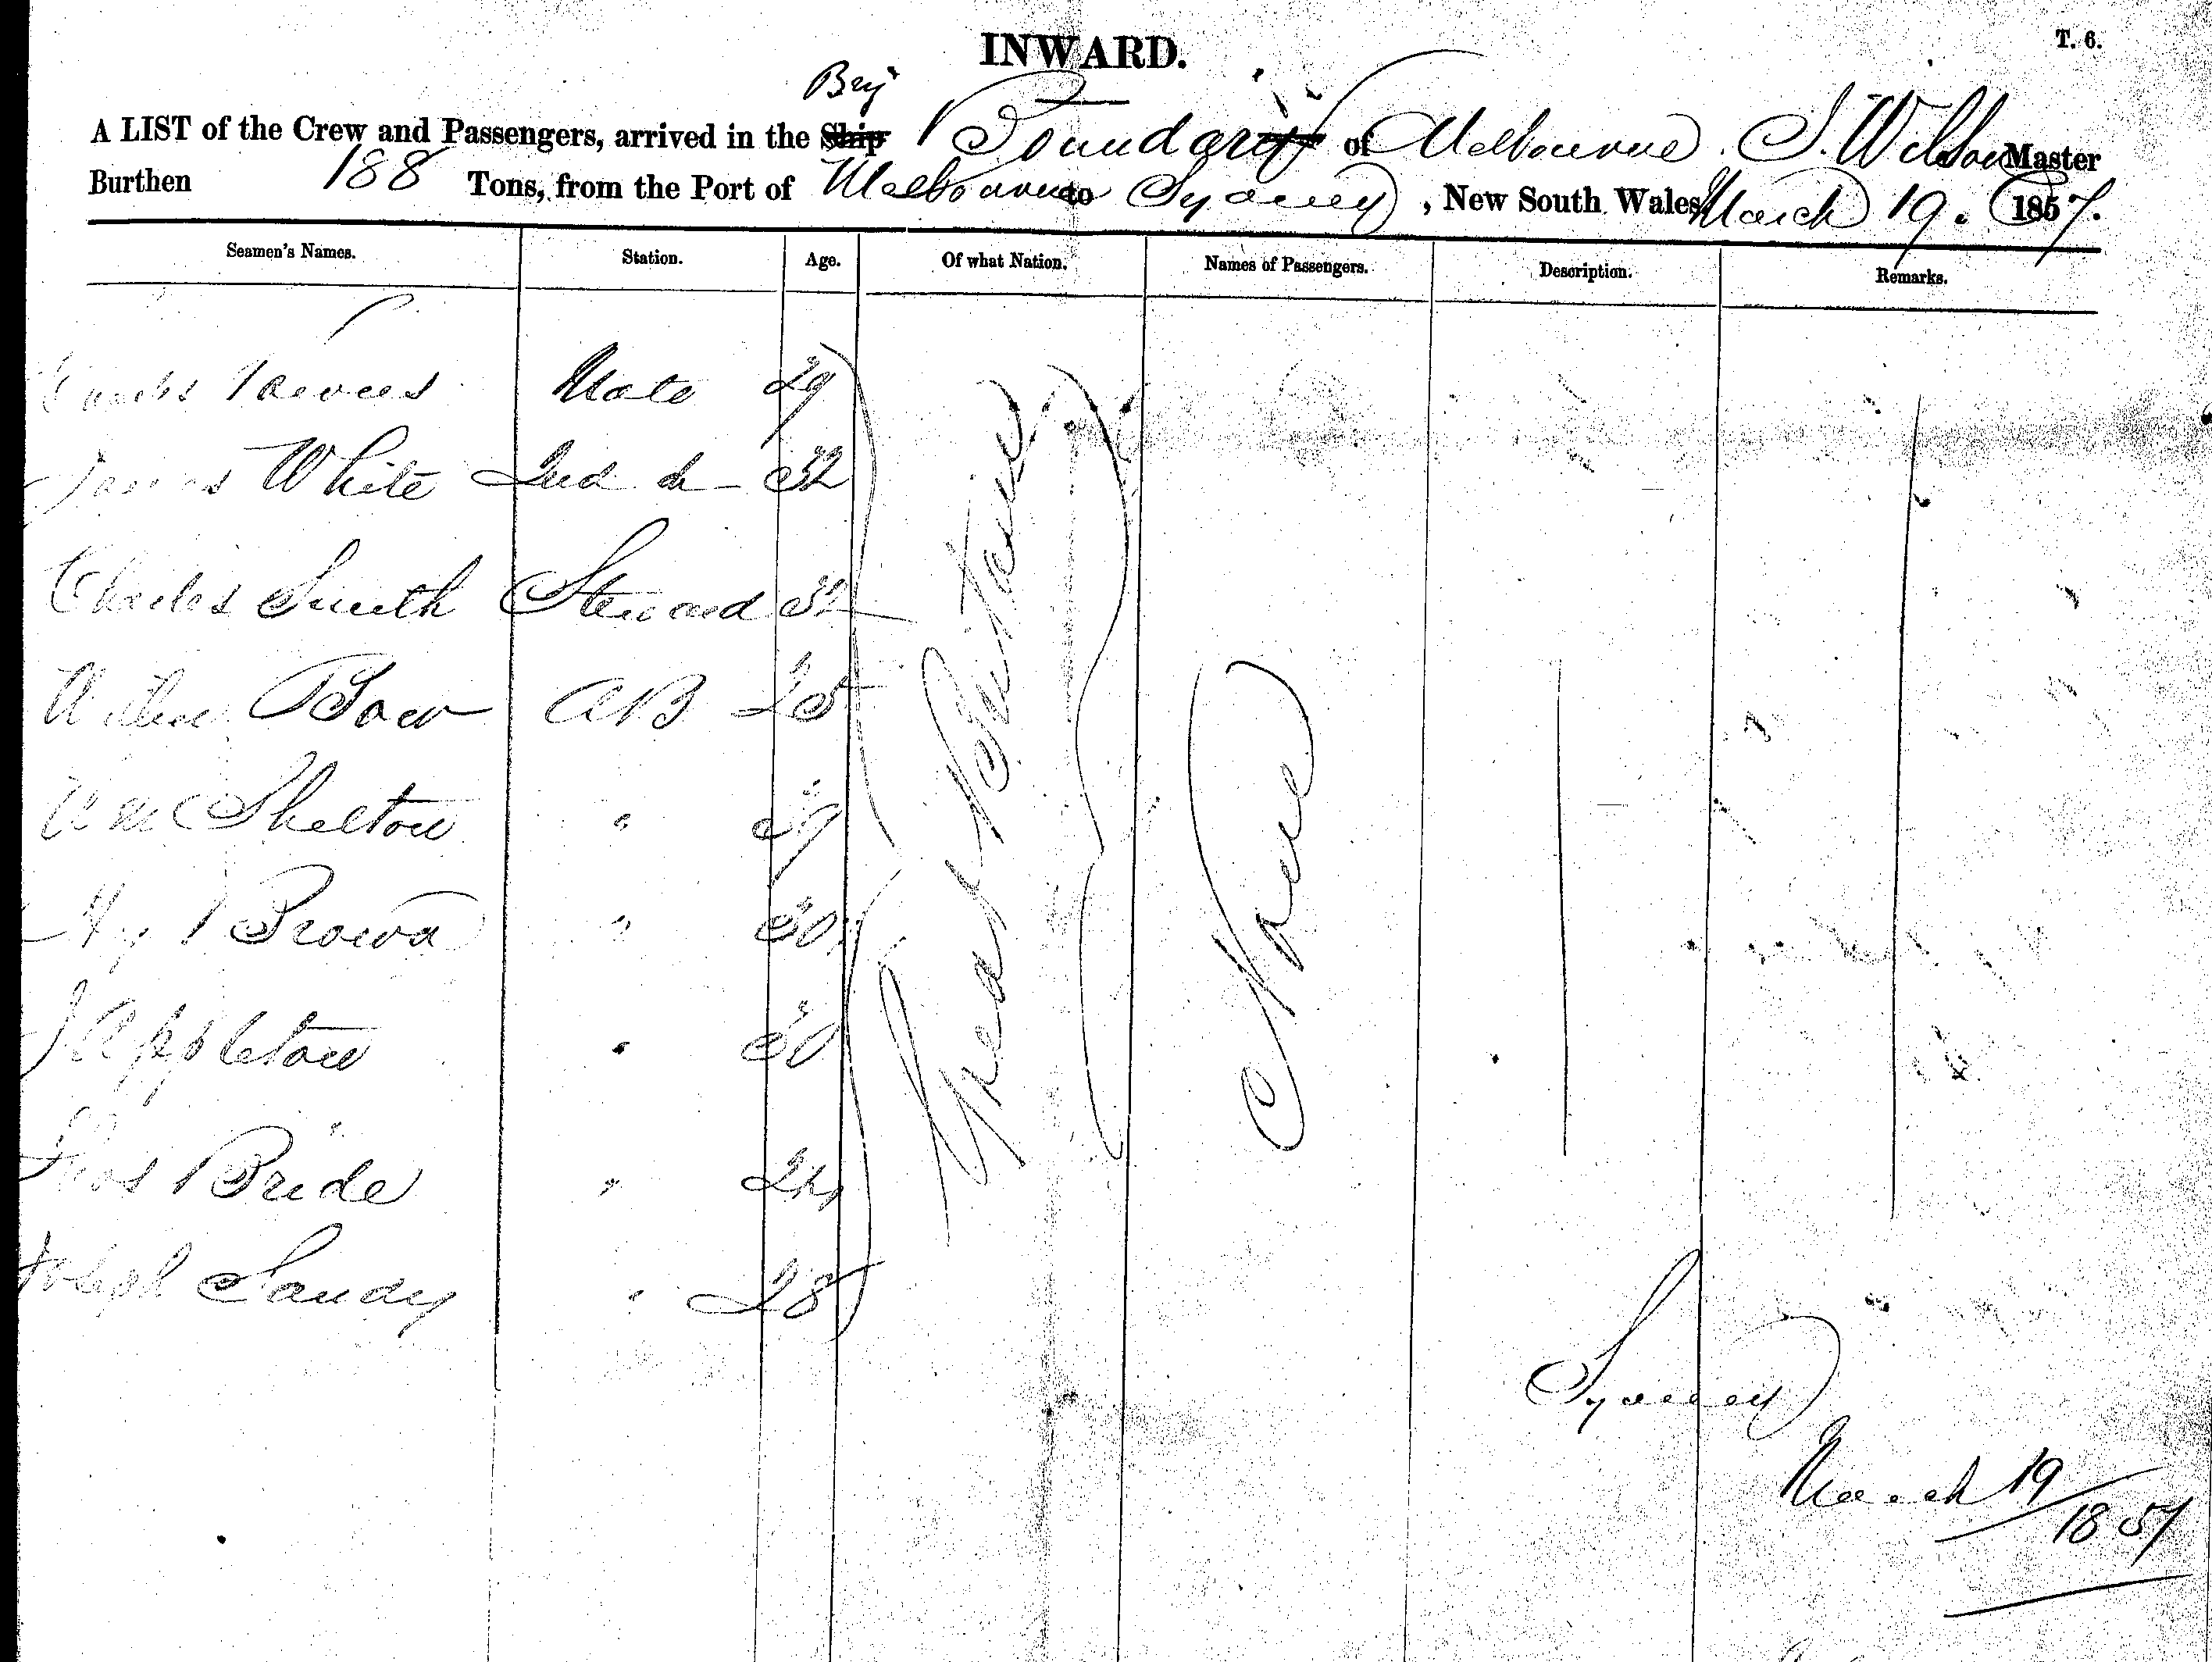 INWARD.
T. 6.
Brig
A LIST of the Crew and Passengers, arrived in the Ship Boundary of Melbourne. S. Wilson Master
Burthen 188 Tons, from the Port of Melbourne to Sydney, New South Wales March 19. 1857.
Seamen's Names. Station. Age. Of what Nation. Names of Passengers. Description. Remarks.
Reeves Mate 29
James White 2nd do 32
Charles Smith Steward 32
Bow AB 25
Wm Shelton " 29
Hy Brown " 30
J Appleton " 30
Thos Bride " 24
Joseph Sandy " 28
Great Britain
None
Sydney
March 19
1857